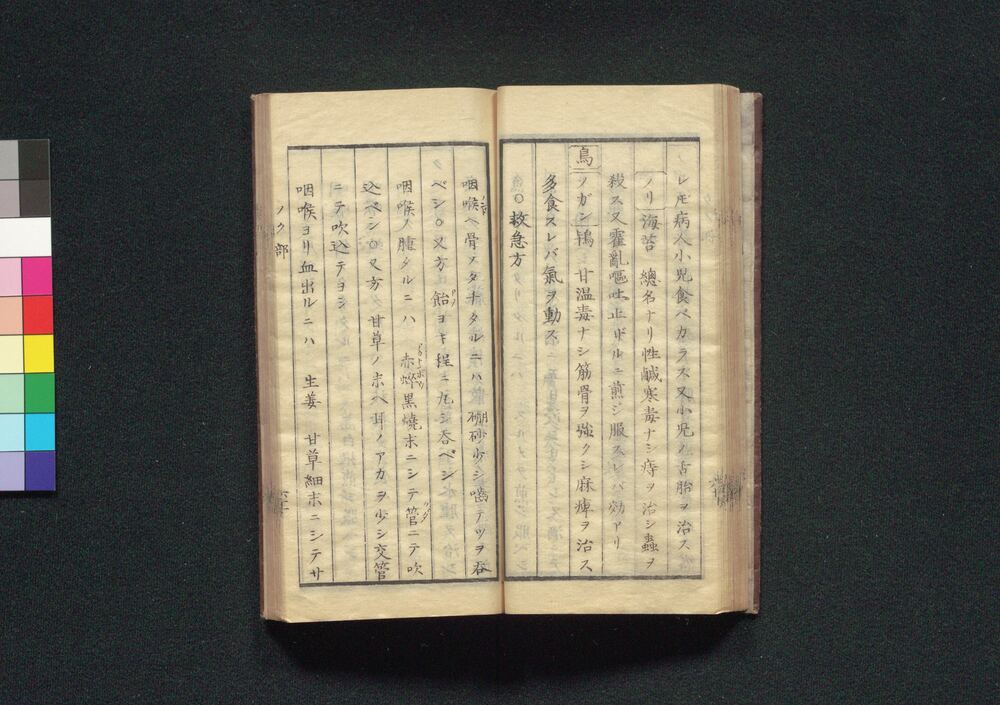 レ𪜈病人小児食ベカラス又小児ノ舌胎ヲ治ス
ノリ 海苔 總名ナリ性鹹寒毒ナシ痔ヲ治シ蟲ヲ
殺ス又霍亂嘔吐止ザルニ煎ジ服スレバ効アリ
鳥 ノガン 鴇 甘温毒ナシ筋骨ヲ強クシ麻痺ヲ治ス
多食スレバ氣ヲ動ス
○救急方
咽喉ヘ骨ノタチタルニハ 硼砂少シ噛テツヲ呑
ベシ○又方 飴ヨキ程ニ丸シ呑ベシ
咽喉ノ腫タルニハ 赤蜻黒燒末ニシテ管ニテ吹
込ベシ○又方 甘草ノ末ヘ耳ノアカヲ少シ交管
ニテ吹込テヨシ
咽喉ヨリ血出ルニハ 生姜 甘草細末ニシテサ
ノク部